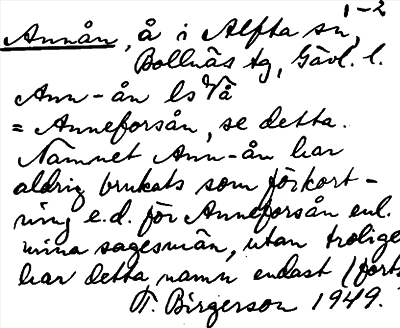 1-2
Annån, å i Alfta sn,
Bollnäs tg, Gävl. l.
Ann-ån ls Vå
= Anneforsån, se detta.
Namnet Ann-ån har
aldrig brukats som förkort-
ning e.d. för Anneforsån enl.
mina sagesmän, utan trolige
har detta namn endast (forts
T. Birgerson 1949.